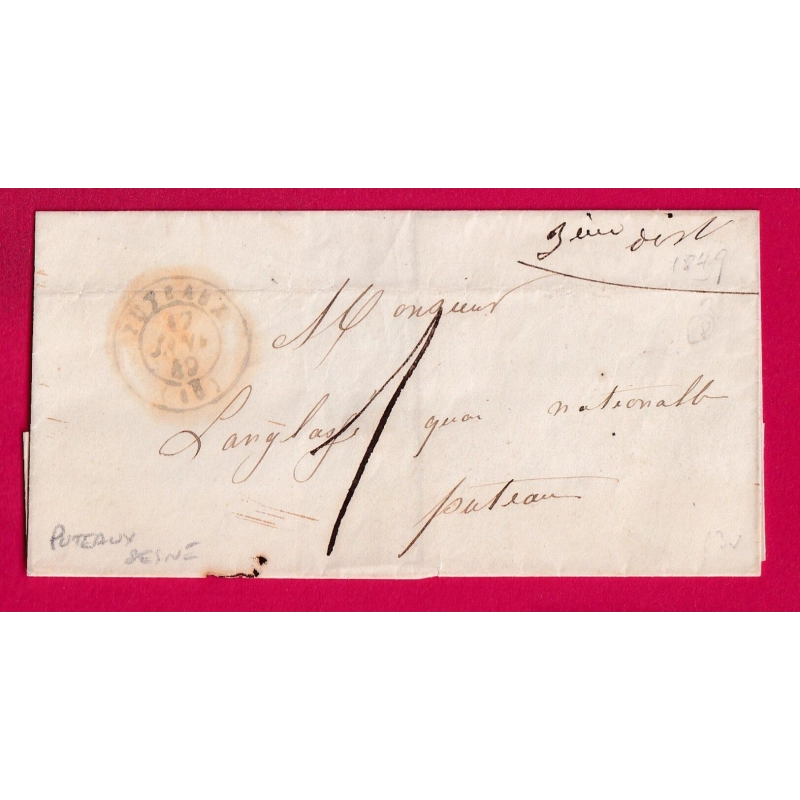 3ème dist
1849
PUTEAUX
17
JANV.
49
(18)
Monsieur
1
Langlass quai nationalle
puteaux
PUTEAUX
SESNE